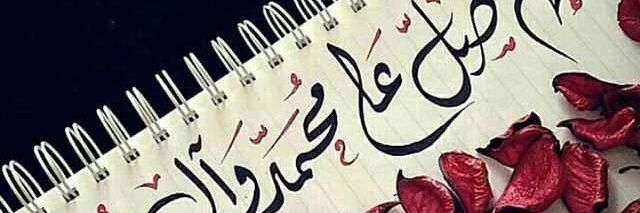 صلِّ عَلى مُحَمَّد وَآل